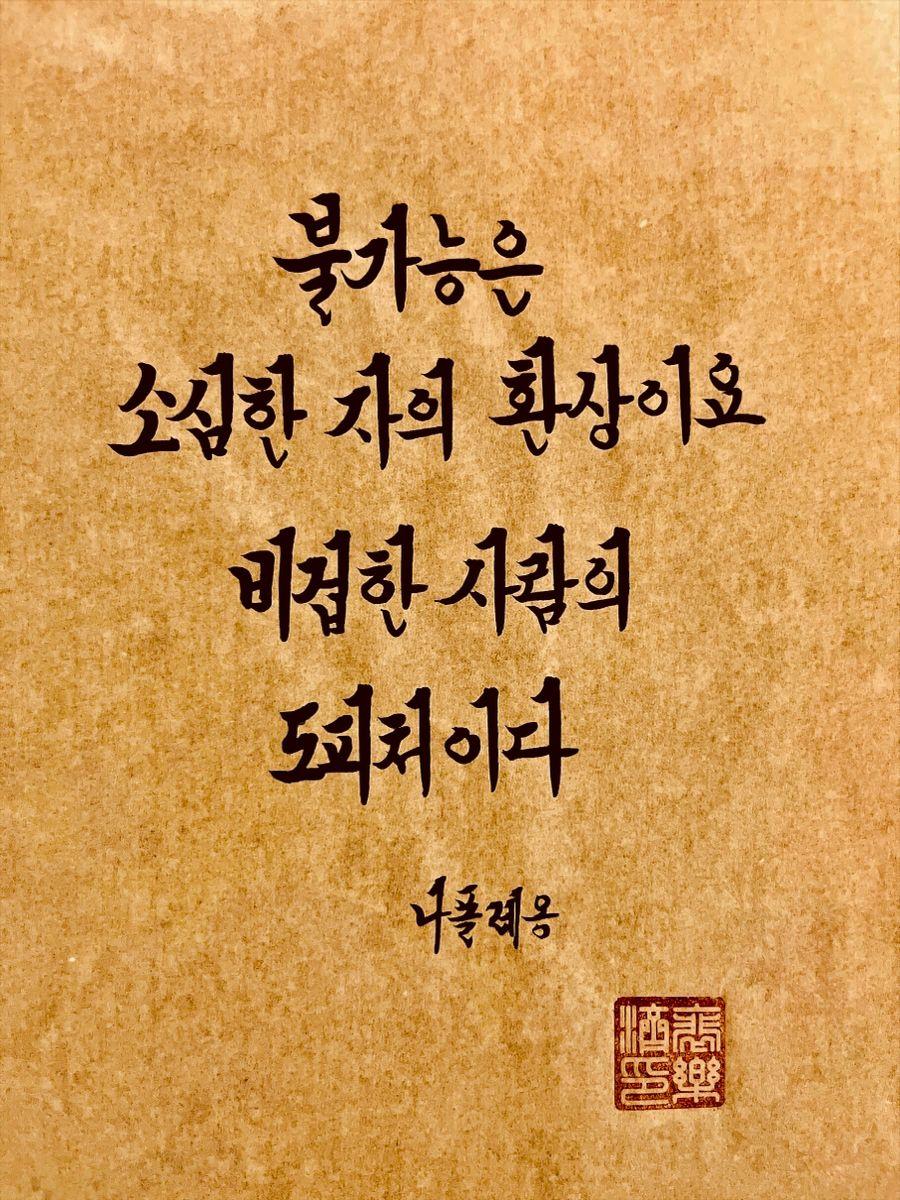 불가능은
소심한 자의 환상이요
비겁한 사람의
도피처이다
나폴레옹